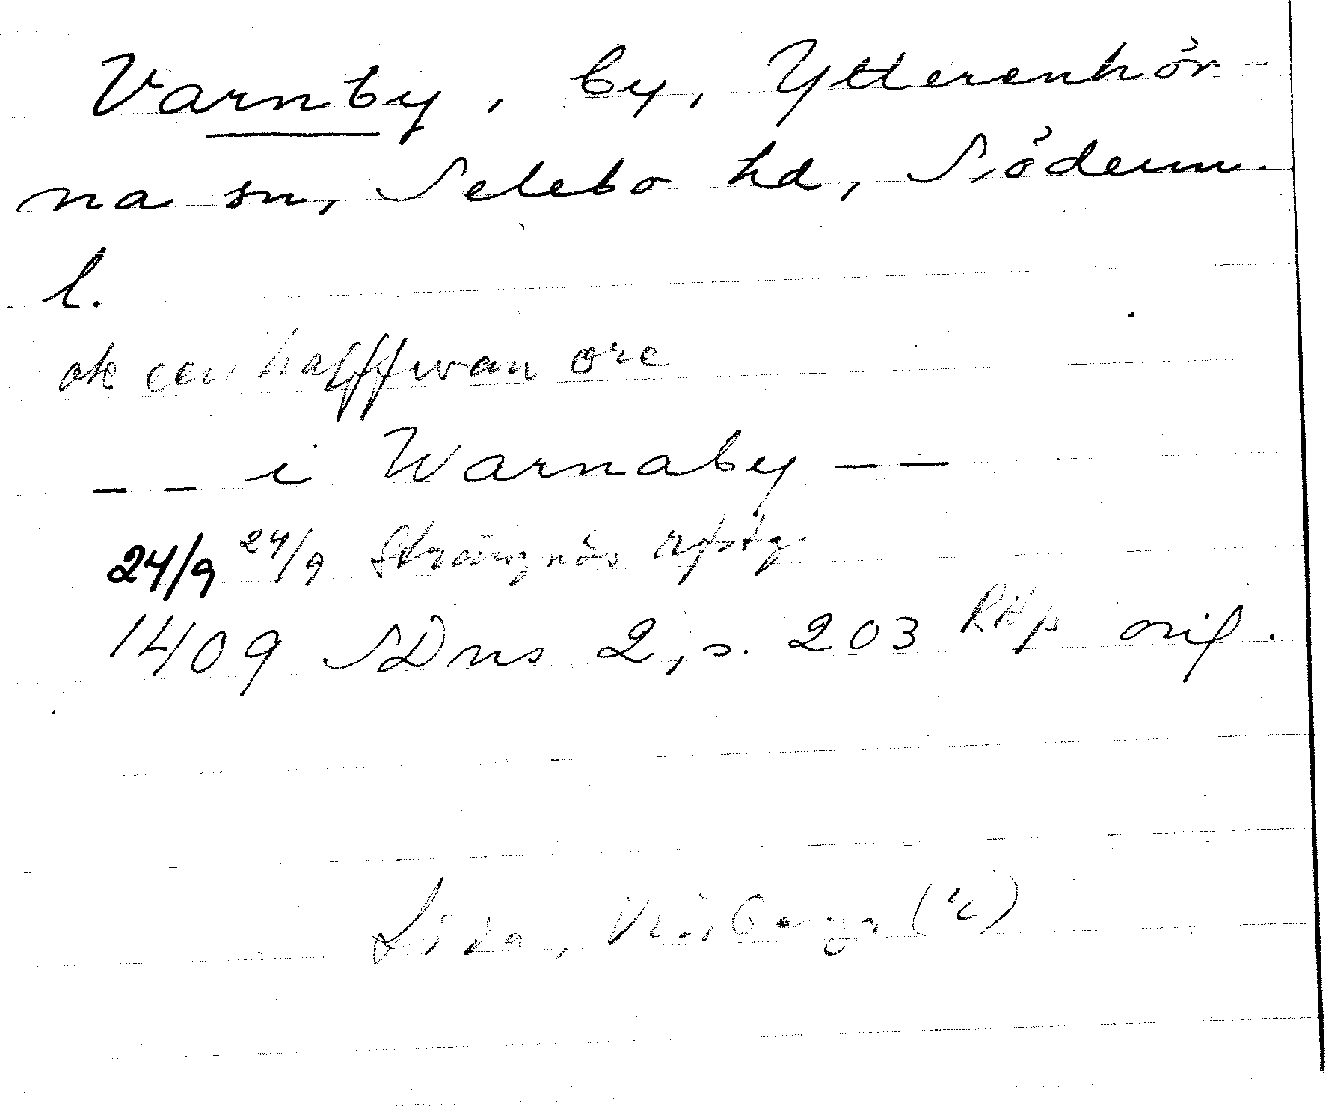 Varnby, by, Ytterenhör-
na sn, Selebo hd, Söderm.
l.
ok een halffwan øre
-- i Warnaby --
24/9 24/9 Strängnäs
1409 SDns 2, s. 203 RAp orig.
Lida,